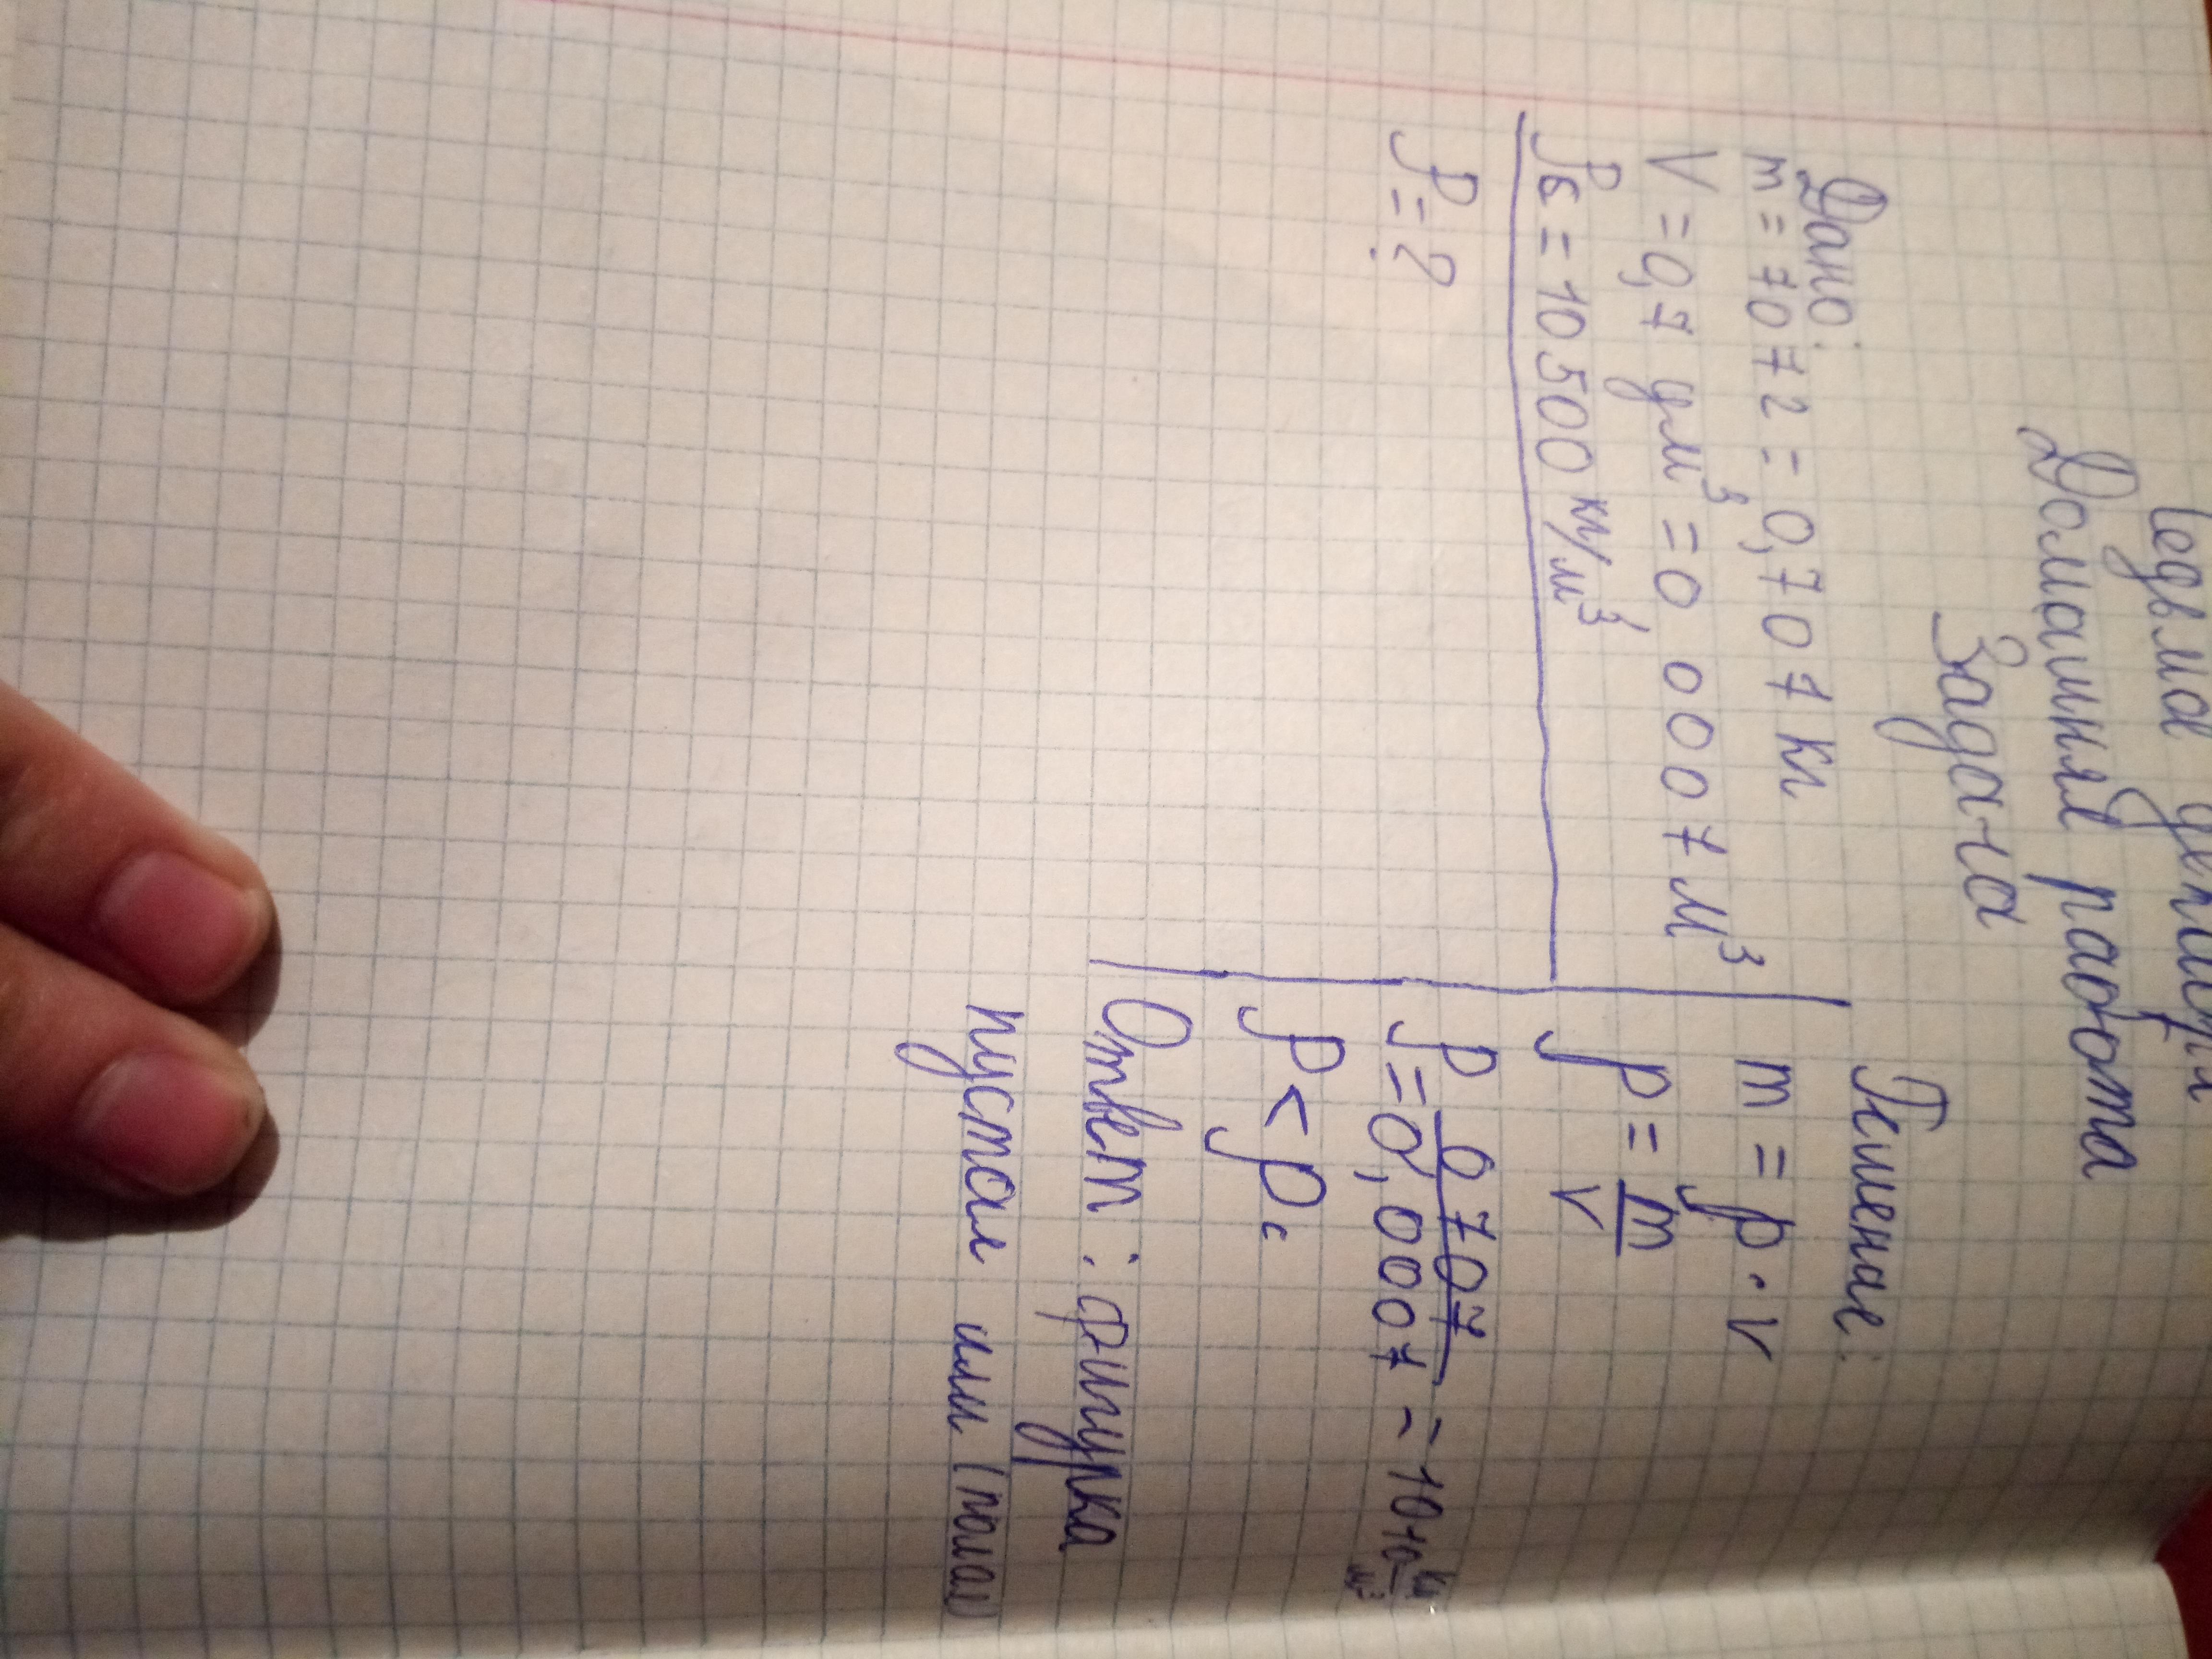 Седьмое декабря
Домашняя работа
Задача
Дано:
m = 707 г = 0,707 кг
V = 0,7 дм³ = 0 0007 м³
ρс = 10 500 кг/м³
ρ = ?
Решение:
m = ρ · V
ρ = m/V
ρ = 0 707/0,0007 = 1010 кг/м³
ρ < ρс
Ответ: фигурка
пустая или (полая)